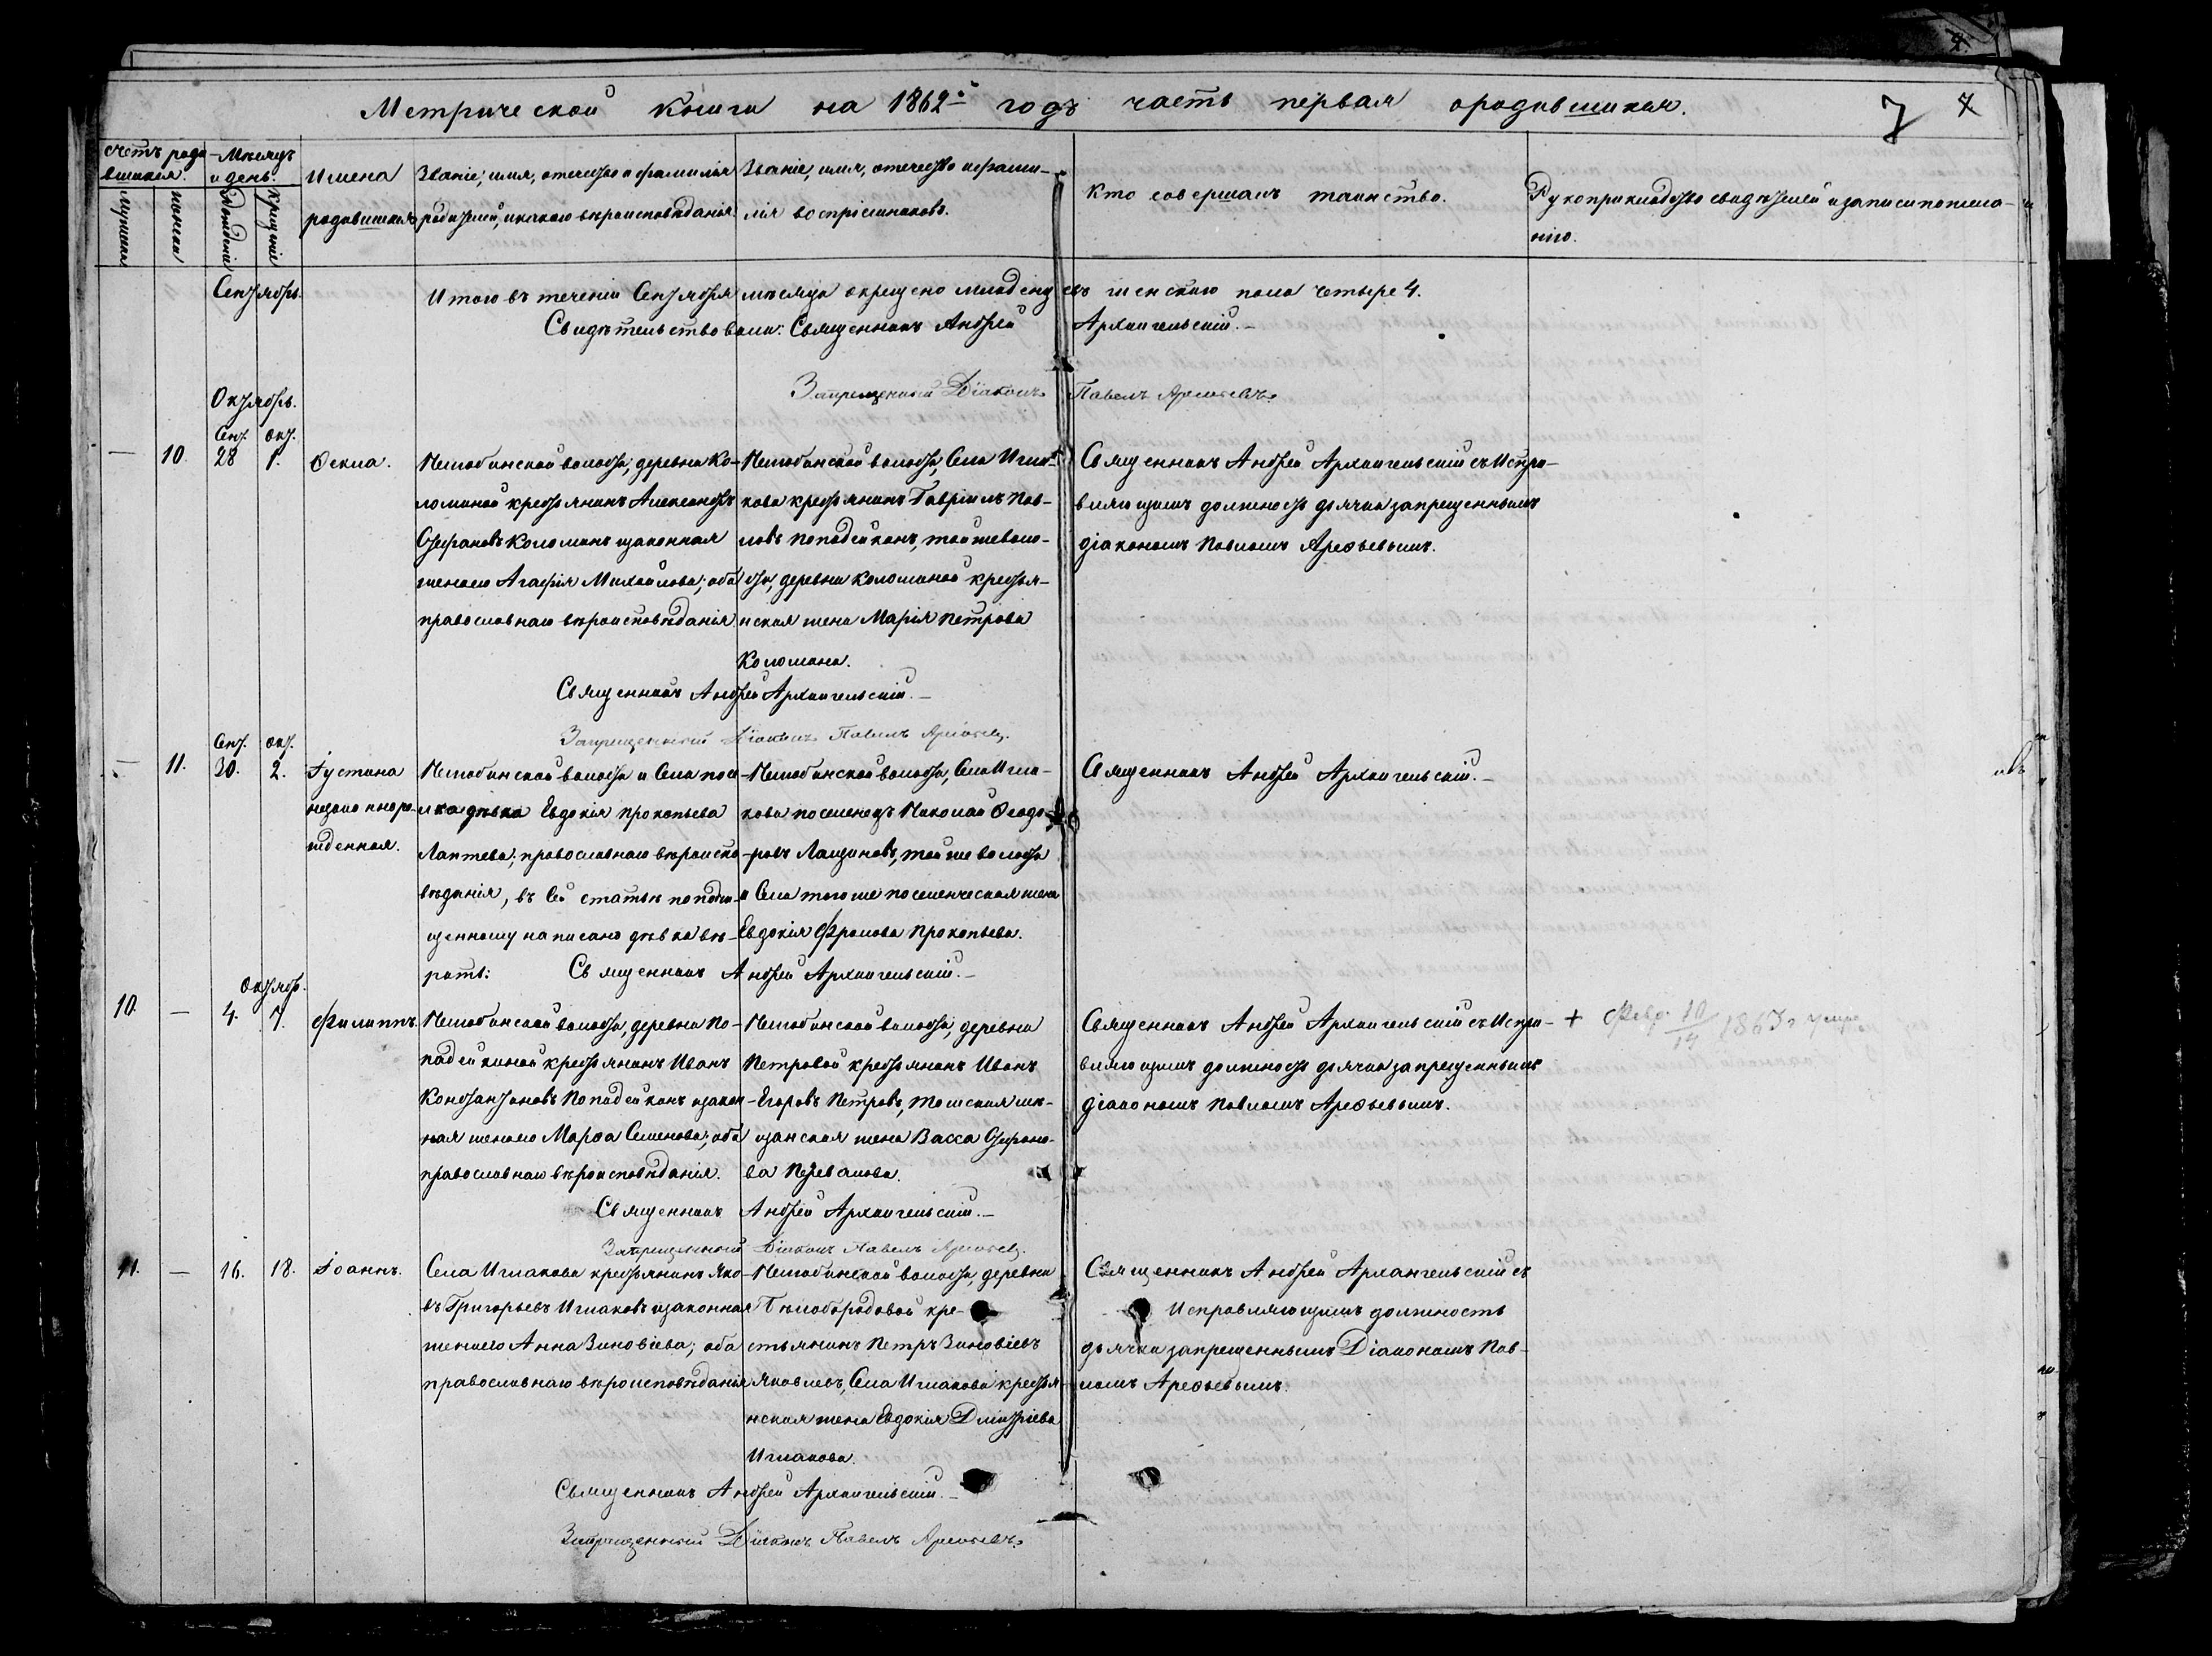 Метрической книги на 1862й годъ часть первая о родившихся.
7 7
Счетъ роди-
вшихся.
Мѣсяцъ
и день.
Имена
родившихся
Званіе, имя, отечество и фамилія
родителей, и какого вѣроисповѣданія.
Званіе, имя, отечество и фами-
лія воспріемниковъ.
Кто совершалъ таинство.
Рукоприкладство свидѣтелей и записи по жела-
нію.
мужеска
женска
Рожденіе
Крещеніе
Сентябрь.
Итого въ теченіи Сентября мѣсяца окрещено младенцевъ женскаго пола четыре 4.
Свидѣтельствовали: Священникъ Андрей Архангельскій.
Запрещенный Діаконъ Павелъ Арефьевъ.
Октябрь.
Сент. Окт.
— 10. 28 1. Фекла.
волости, деревни Ко-
ломиной крестьянинъ Александръ
Стефановъ Коломинъ и законная
жена его Агафія Михайлова; оба
православнаго вѣроисповѣданія.
волости, Села Игла-
кова крестьянинъ Гавріилъ Пав-
ловъ Попадейкинъ, той же воло-
сти, деревни Коломиной крестья-
нская жена Марія Петрова
Коломина.
Священникъ Андрей Архангельскій съ Испра-
вляющимъ должность дьячка запрещеннымъ
діакономъ Павломъ Арефьевымъ.
Священникъ Андрей Архангельскій.
Запрещенный Діаконъ Павелъ Арефьевъ.
Сент. Окт.
— 11. 30. 2. Іустина
незаконноро-
жденная.
волости и Села посе-
лка дѣвка Евдокія Прокопьева
Лаптева; православнаго вѣроиспо-
вѣданія, въ сей статьѣ по подчи-
щенному написано дѣвка вѣ-
рить:
волости, Села Игла-
кова поселенецъ Николай Феодо-
ровъ Лащиновъ, той же волости
и Села того же поселенческая жена
Евдокія Фролова Прокопьева.
Священникъ Андрей Архангельскій.
Священникъ Андрей Архангельскій.
Октябр.
10. — 4. 7. Филиппъ.
волости, деревни По-
падейкиной крестьянинъ Иванъ
Константиновъ Попадейкинъ и закон-
ная жена его Марфа Семенова; оба
православнаго вѣроисповѣданія.
волости, деревни
Петровой крестьянинъ Иванъ
Егоровъ Петровъ, Томская мѣ-
щанская жена Васса Стефано-
ва Перевалова.
Священникъ Андрей Архангельскій съ Испра-
вляющимъ должность дьячка запрещеннымъ
діакономъ Павломъ Арефьевымъ.
+ Февр. 10/14 1863 г умре
Священникъ Андрей Архангельскій.
Запрещенный Діаконъ Павелъ Арефьевъ.
11. — 16. 18. Іоаннъ.
Села Иглакова крестьянинъ Яко-
въ Григорьевъ Иглаковъ и законная
жена его Анна Зиновіева; оба
православнаго вѣроисповѣданія
волости, деревни
Бѣлобородовой кре-
стьянинъ Петръ Зиновіевъ
Яковлевъ, Села Иглакова крестья-
нская жена Евдокія Димитріева
Иглакова.
Священникъ Андрей Архангельскій съ
Исправляющимъ должность
дьячка запрещеннымъ Діакономъ Пав-
ломъ Арефьевымъ.
Священникъ Андрей Архангельскій.
Запрещенный Діаконъ Павелъ Арефьевъ.